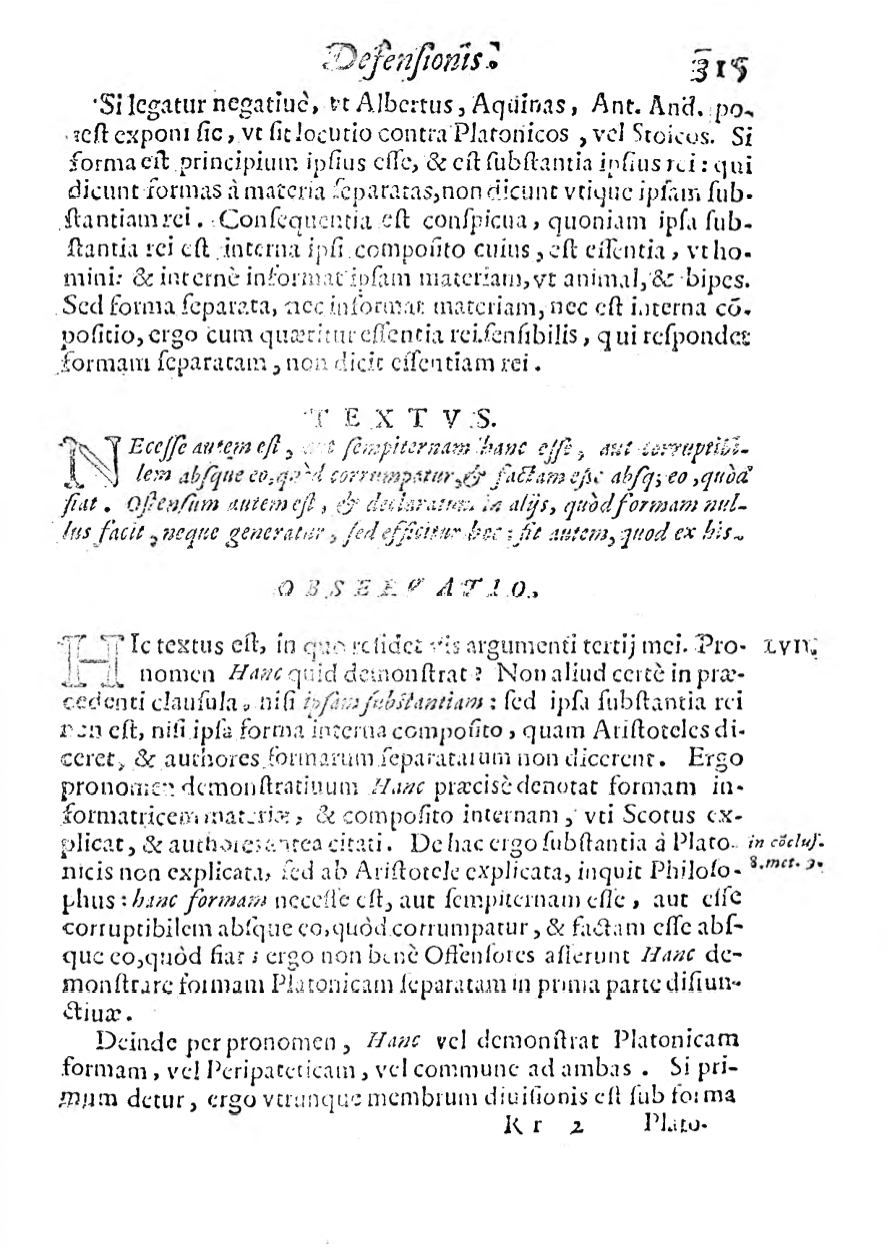 Defensionis. 315
Si legatur negatiuè, vt Albertus, Aquinas, Ant. And. po-
test exponi sic, vt sit locutio contra Platonicos, vel Stoicos. Si
forma est principium ipsius esse, & est substantia ipsius rei: qui
dicunt formas à materia separatas, non dicunt vtique ipsam sub-
stantiam rei. Consequentia est conspicua, quoniam ipsa sub-
stantia rei est interna ipsi composito cuius, est essentia, vt ho-
mini: & internè informat ipsam materiam, vt animal, & bipes.
Sed forma separata, nec informat materiam, nec est interna cō-
positio, ergo cum quæritur essentia rei sensibilis, qui respondet
formam separatam, non dicit essentiam rei.
TEXTVS.
NEcesse autem est, aut sempiternam hanc esse, aut corruptibi-
lem absque eo, quòd corrumpatur, & factam esse absq; eo, quòd
fiat. Ostensum autem est, & declaratum in alijs, quòd formam nul-
lus facit, neque generatur, sed efficitur hoc: fit autem, quod ex his.
OBSERVATIO.
HIc textus est, in quo residet vis argumenti tertij mei. Pro- LVII.
nomen Hanc quid demonstrat? Non aliud certè in præ-
cedenti clausula, nisi ipsam substantiam: sed ipsa substantia rei
non est, nisi ipsa forma interna composito, quam Aristoteles di-
ceret, & authores formarum separatarum non dicerent. Ergo
pronomen demonstratiuum Hanc præcisè denotat formam in-
formatricem materiæ, & composito internam, vti Scotus ex-
plicat, & authores antea citati. De hac ergo substantia à Plato- in cōcluſ.
nicis non explicata, sed ab Aristotele explicata, inquit Philoso- 8. met. 9.
phus: hanc formam necesse est, aut sempiternam esse, aut esse
corruptibilem absque eo, quòd corrumpatur, & factam esse abs-
que eo, quòd fiat: ergo non benè Offensores asserunt Hanc de-
monstrare formam Platonicam separatam in prima parte disiun-
ctiuæ.
Deinde per pronomen, Hanc vel demonstrat Platonicam
formam, vel Peripateticam, vel commune ad ambas. Si pri-
mum detur, ergo vtrunque membrum diuisionis est sub forma
Rr 2 Plato-